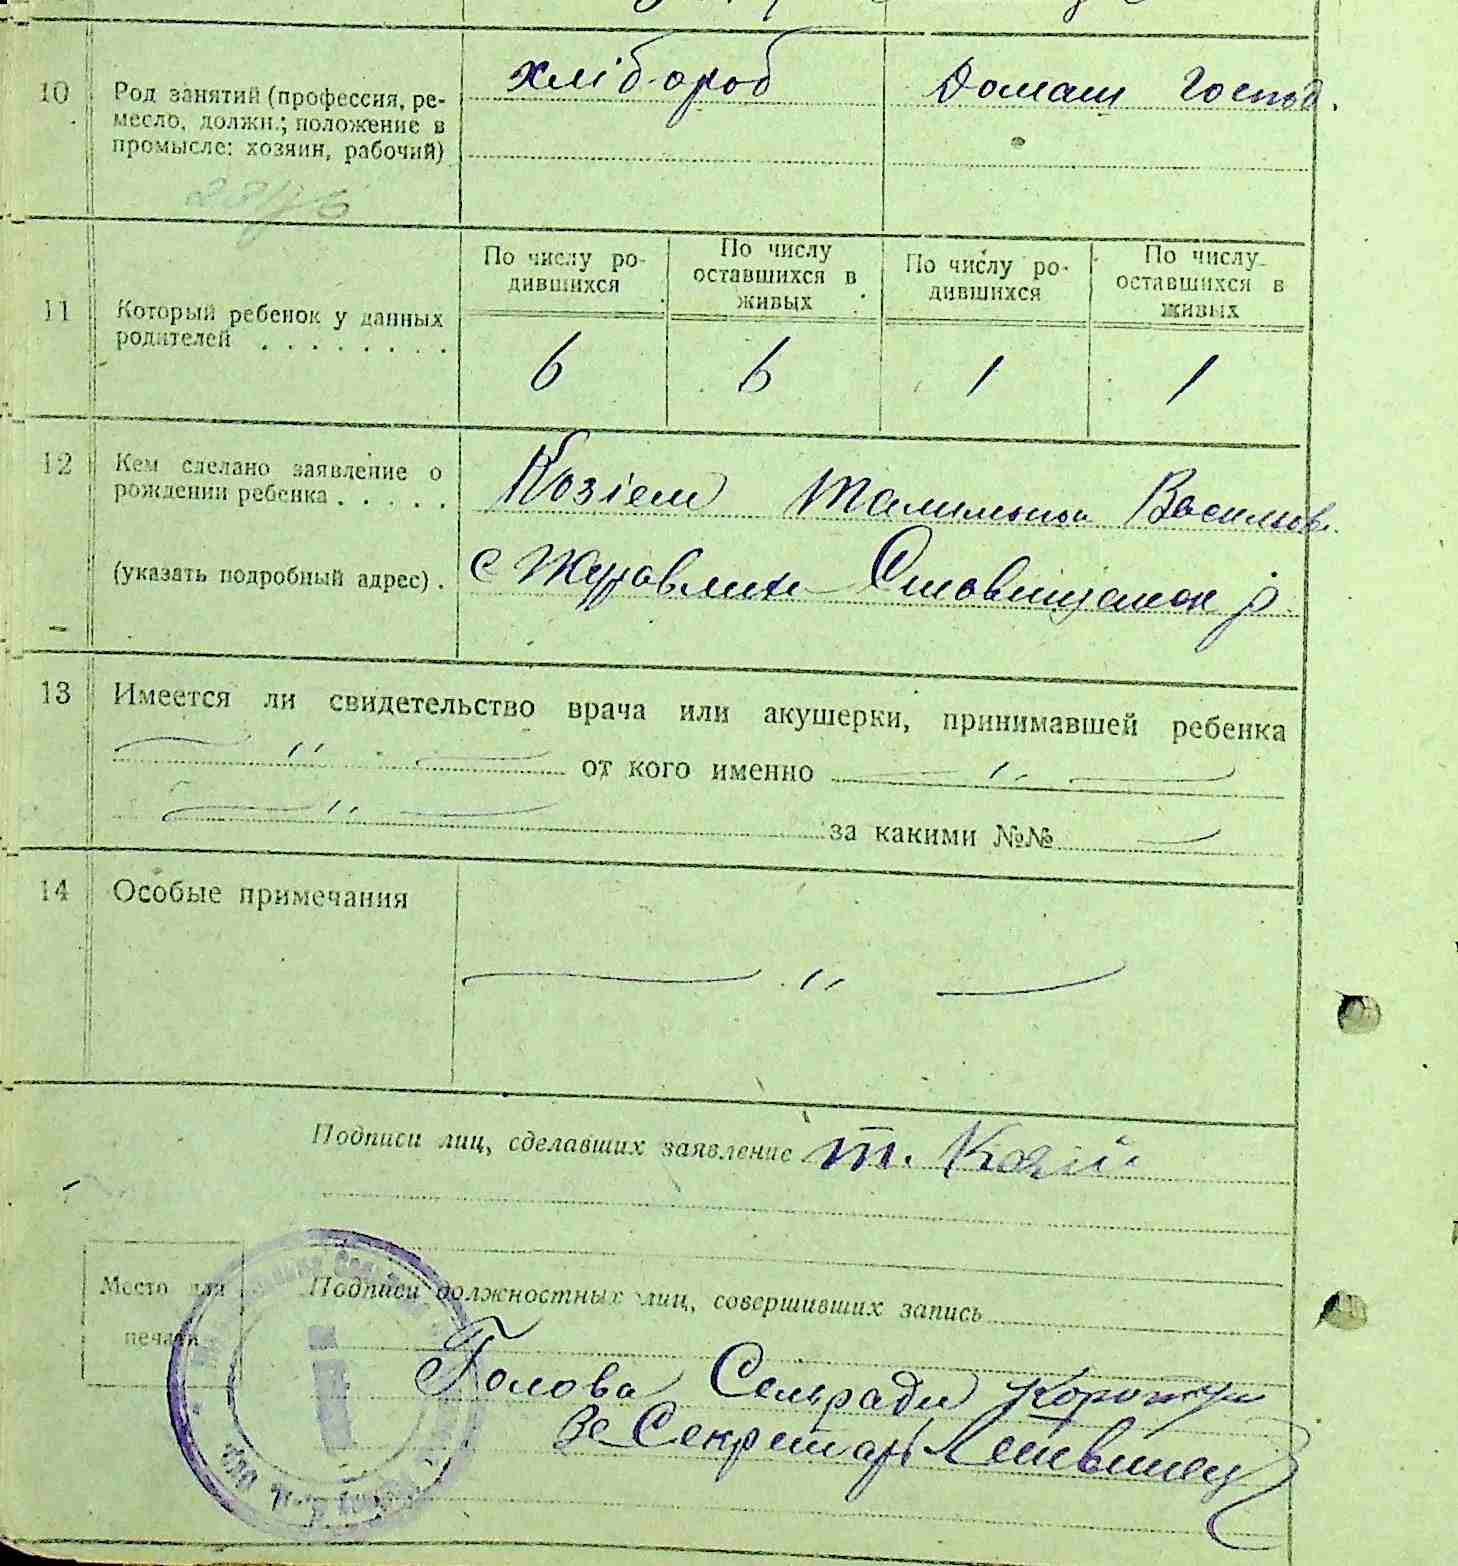 10 Род занятий (профессия, ре-
месло, должн.; положение в
промысле: хозяин, рабочий)
хлібороб
Домаш Господ.
11 Который ребенок у данных
родителей . . . . . . . .
По числу ро-
дившихся
По числу
оставшихся в
живых
По числу ро-
дившихся
По числу
оставшихся в
живых
6 6 1 1
12 Кем сделано заявление о
рождении ребенка . . . . .
(указать подробный адрес) .
Козієм Васильов.
с Журавлиха Ставищанськ р
13 Имеется ли свидетельство врача или акушерки, принимавшей ребенка
— " — от кого именно — " —
— " — за какими №№ —
14 Особые примечания
— " —
Подписи лиц, сделавших заявление т. Козій
Место для
печати
Подписи должностных лиц, совершивших запись
Голова Сельради
За Секретар